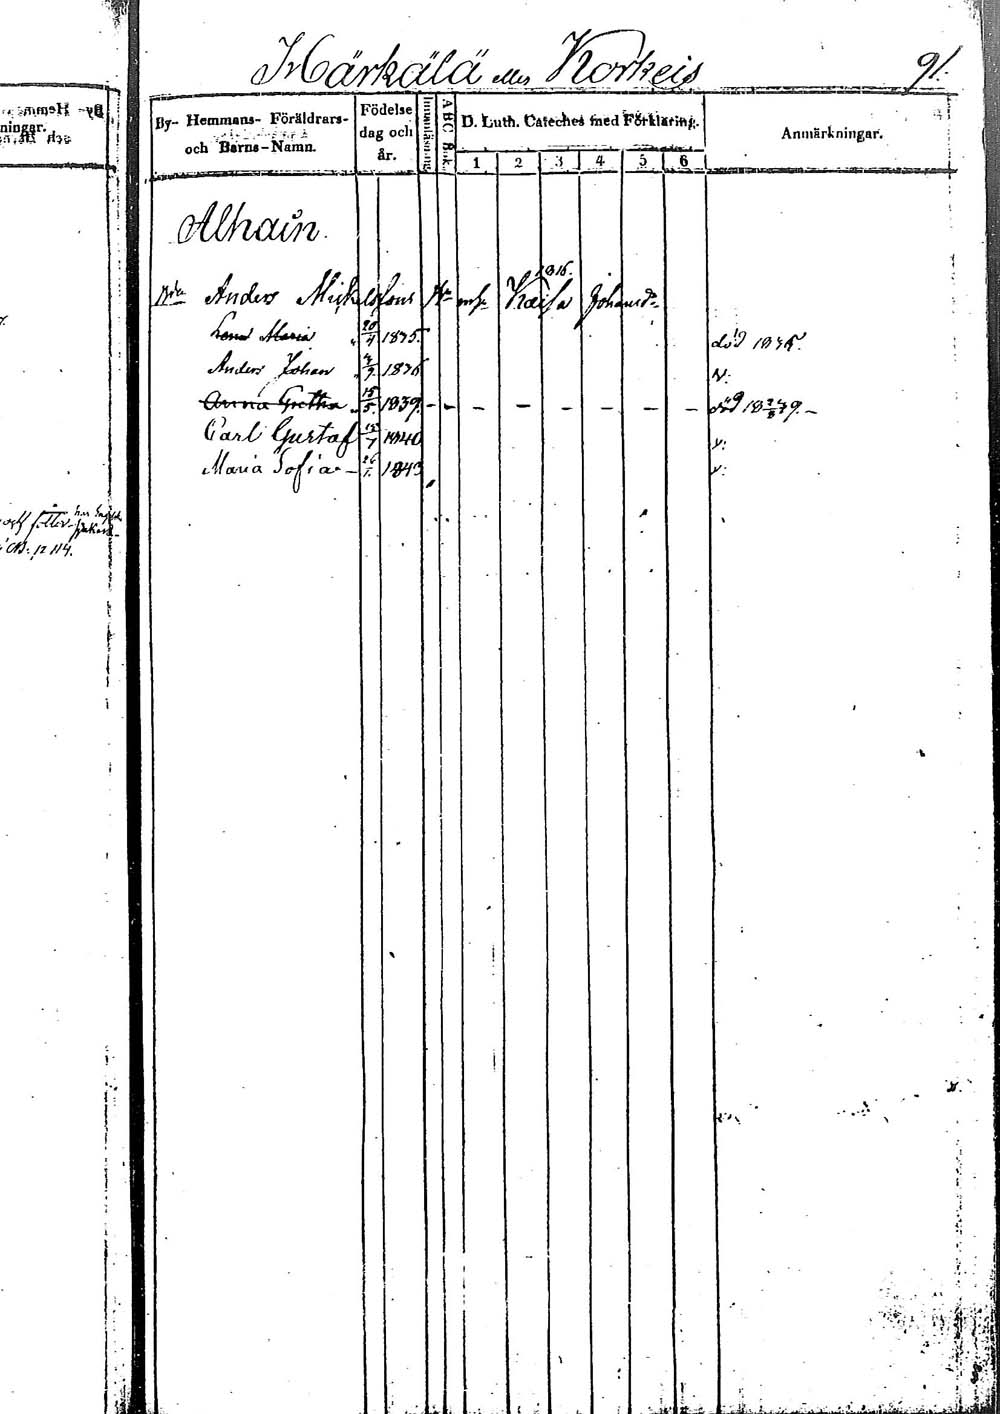 Härkälä eller Korkeis 91.
By- Hemmans- Föräldrars- och Barns-Namn.
Födelse dag och år.
Innanläsning
A B C Bok.
D. Luth. Cateches med Förklaring.
1 2 3 4 5 6
Anmärkningar.
Alhain.
1816.
Anders Michelssons Kaisa Johansd:r
Lena Maria 20/4 1835. död 1835.
Anders Johan 1836 v.
Anna Gretha 15/5 1839. - - - - - - - död 18 39. -
Carl Gustaf 15/7 1840 v.
Maria Sofia - 26/1. 1843 v.
ningar.